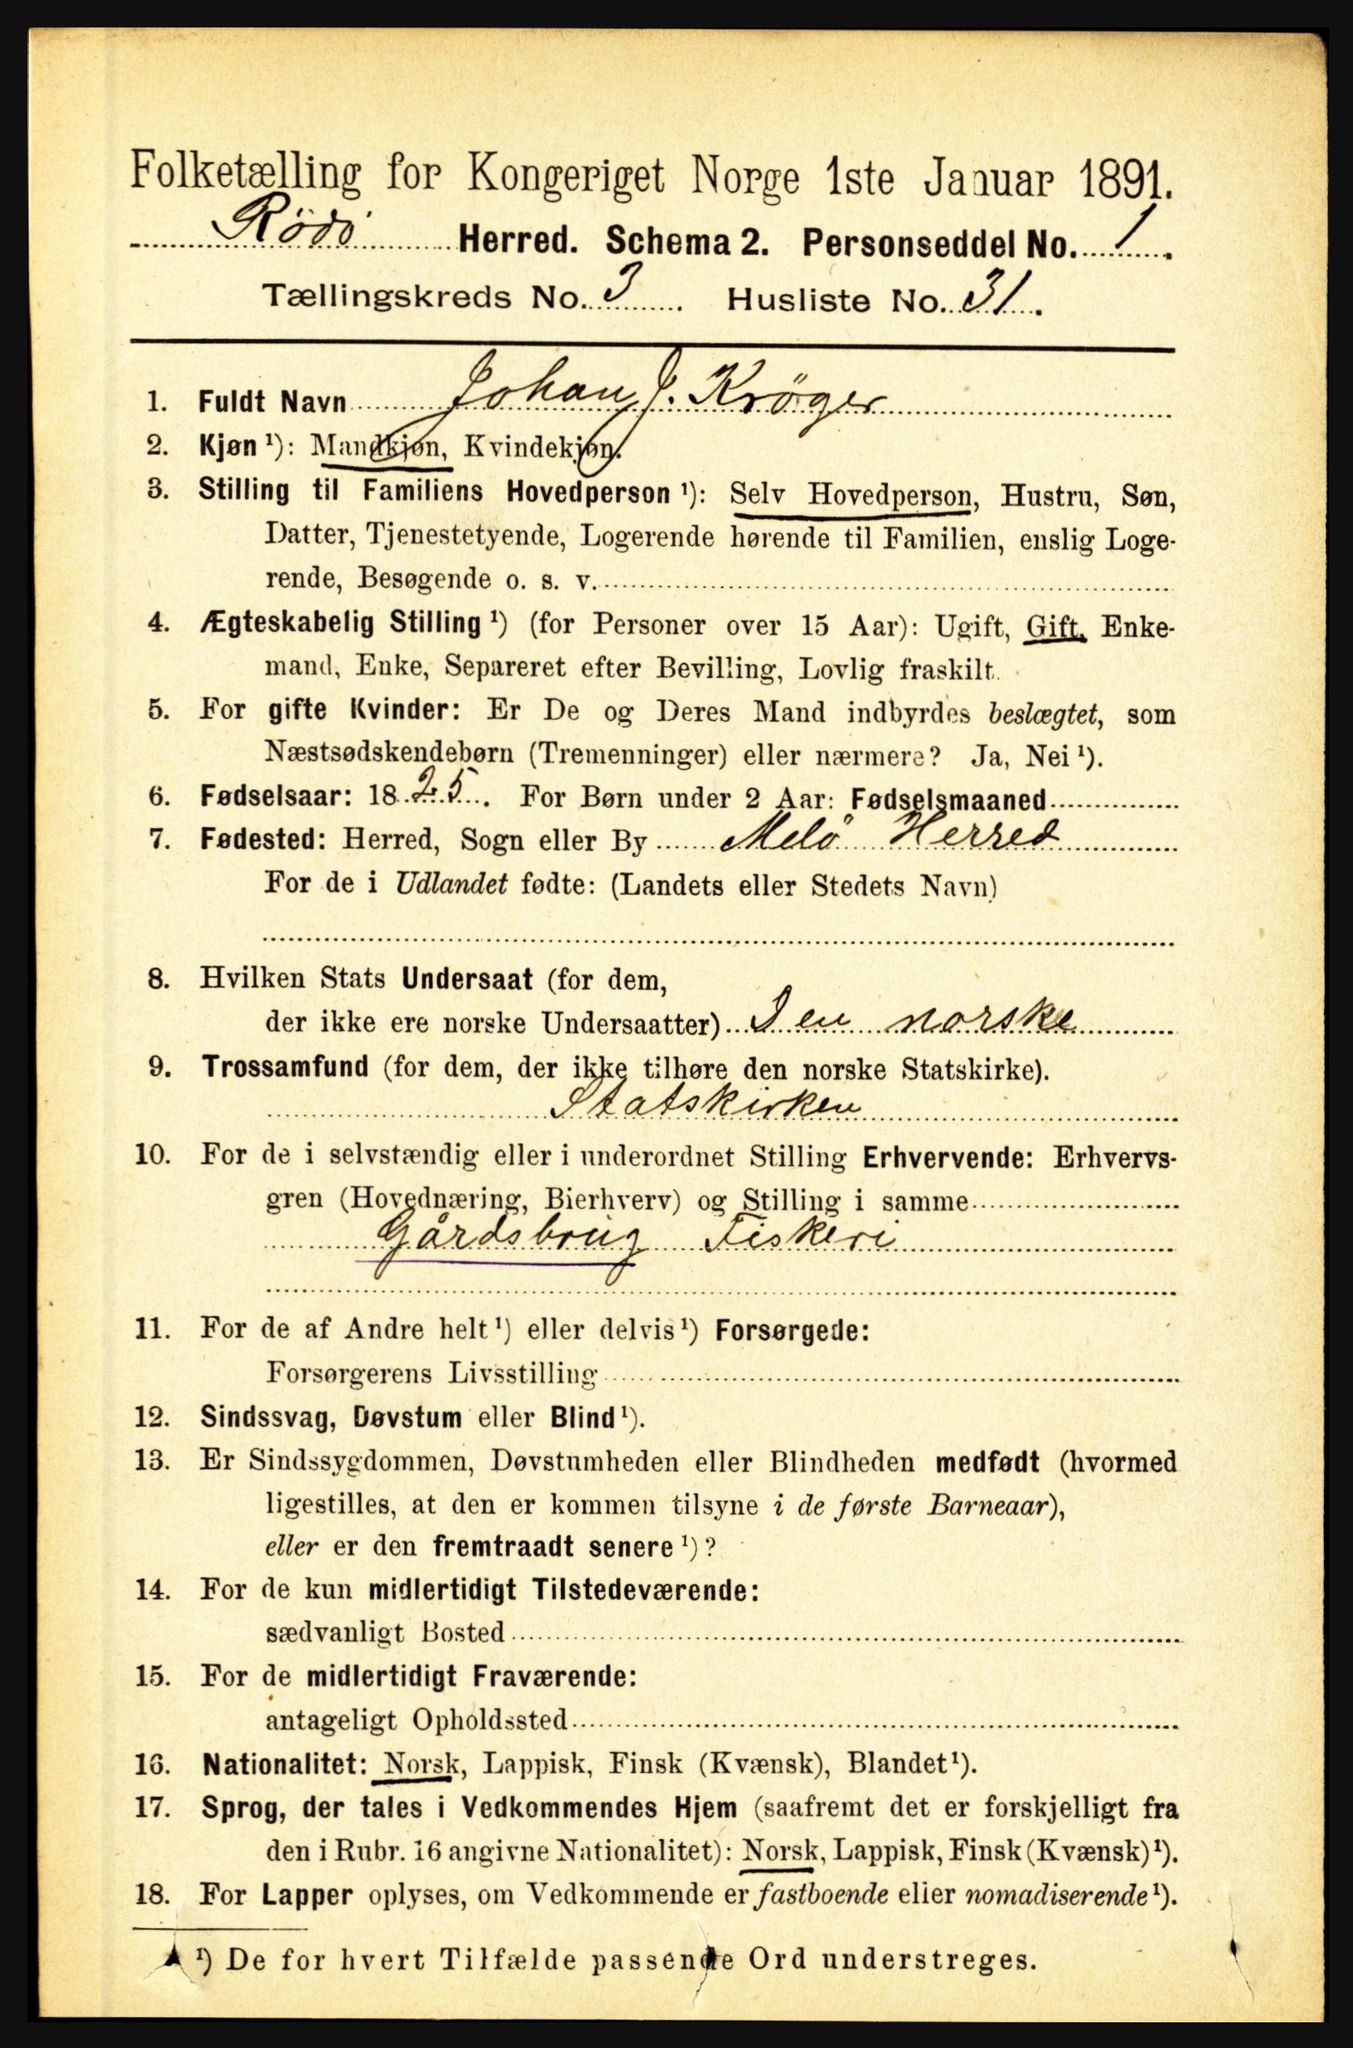 Folketælling for Kongeriget Norge 1ste Januar 1891.
Rödö Herred. Schema 2. Personseddel No. 1.
Tællingskreds No. 3. Husliste No. 31.
1. Fuldt Navn Johan J. Kröger
2. Kjøn ¹): Mandkjøn, Kvindekjøn.
3. Stilling til Familiens Hovedperson ¹): Selv Hovedperson, Hustru, Søn,
Datter, Tjenestetyende, Logerende hørende til Familien, enslig Loge-
rende, Besøgende o. s. v.
4. Ægteskabelig Stilling ¹) (for Personer over 15 Aar): Ugift, Gift, Enke-
mand, Enke, Separeret efter Bevilling, Lovlig fraskilt.
5. For gifte Kvinder: Er De og Deres Mand indbyrdes beslægtet, som
Næstsødskendebørn (Tremenninger) eller nærmere? Ja, Nei ¹).
6. Fødselsaar: 1825. For Børn under 2 Aar: Fødselsmaaned
7. Fødested: Herred, Sogn eller By Melö Herred
For de i Udlandet fødte: (Landets eller Stedets Navn)
8. Hvilken Stats Undersaat (for dem,
der ikke ere norske Undersaatter) Den norske
9. Trossamfund (for dem, der ikke tilhøre den norske Statskirke).
Statskirken
10. For de i selvstændig eller i underordnet Stilling Erhvervende: Erhvervs-
gren (Hovednæring, Bierhverv) og Stilling i samme
Gårdsbrug Fiskeri
11. For de af Andre helt ¹) eller delvis ¹) Forsørgede:
Forsørgerens Livsstilling
12. Sindssvag, Døvstum eller Blind ¹).
13. Er Sindssygdommen, Døvstumheden eller Blindheden medfødt (hvormed
ligestilles, at den er kommen tilsyne i de første Barneaar),
eller er den fremtraadt senere ¹)?
14. For de kun midlertidigt Tilstedeværende:
sædvanligt Bosted
15. For de midlertidigt Fraværende:
antageligt Opholdssted
16. Nationalitet: Norsk, Lappisk, Finsk (Kvænsk), Blandet ¹).
17. Sprog, der tales i Vedkommendes Hjem (saafremt det er forskjelligt fra
den i Rubr. 16 angivne Nationalitet): Norsk, Lappisk, Finsk (Kvænsk) ¹).
18. For Lapper oplyses, om Vedkommende er fastboende eller nomadiserende ¹).
¹) De for hvert Tilfælde passende Ord understreges.